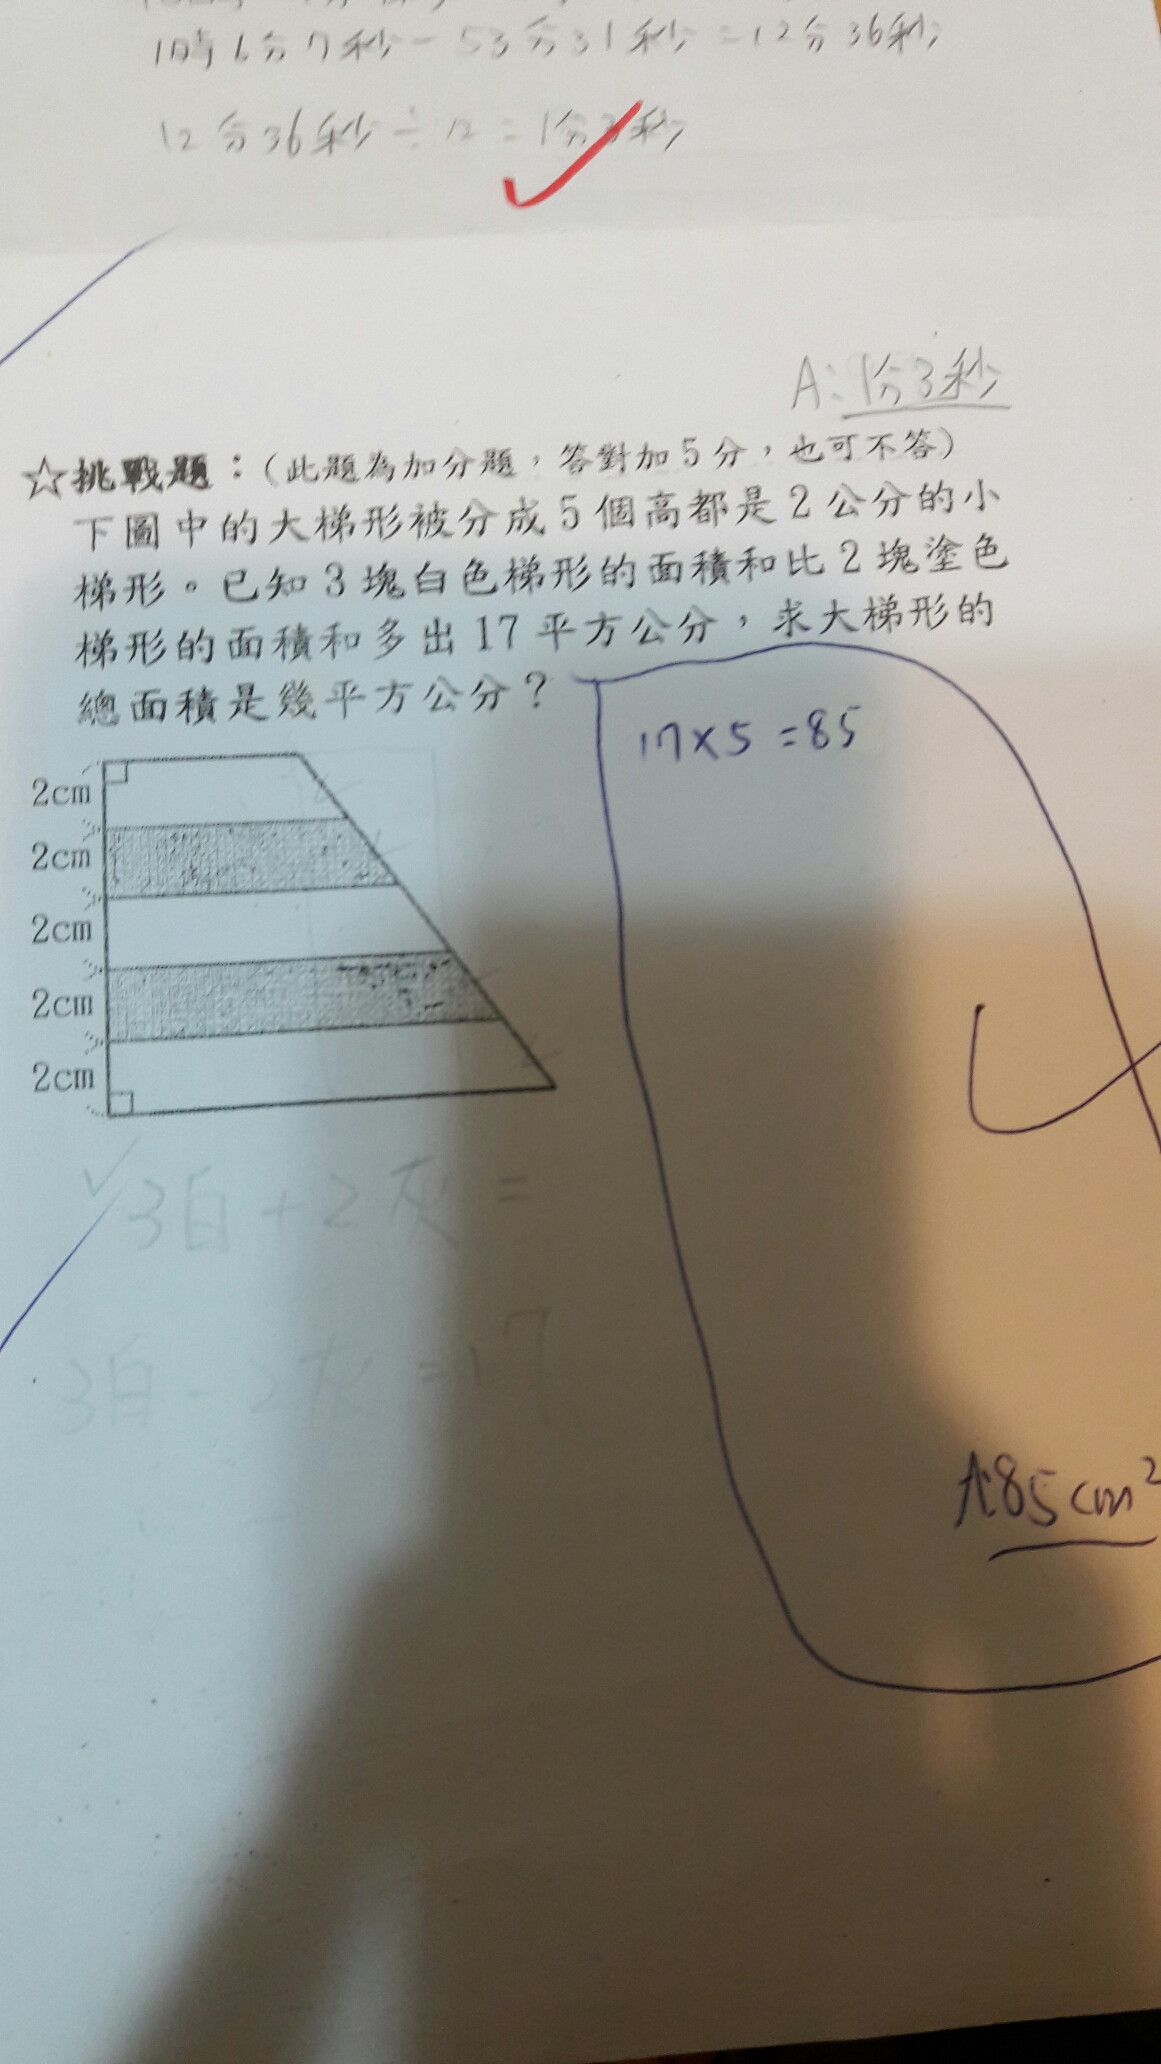 1時6分7秒－53分31秒＝12分36秒
12分36秒÷12＝1分3秒
A:1分3秒
☆挑戰題：(此題為加分題，答對加5分，也可不答)
下圖中的大梯形被分成5個高都是2公分的小
梯形。已知3塊白色梯形的面積和比2塊塗色
梯形的面積和多出17平方公分，求大梯形的
總面積是幾平方公分？
17×5=85
2cm
2cm
2cm
2cm
2cm
3白+2灰=
3白-2灰=17
A:85cm²